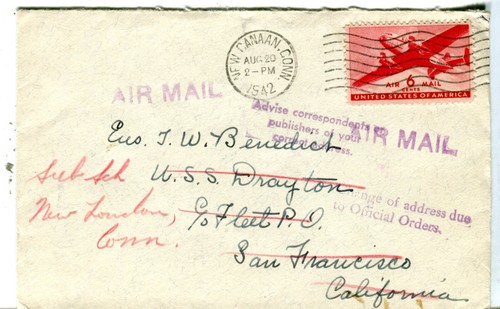 NEW CANAAN, CONN.
AUG 20
2-PM
1942
AIR 6 MAIL
CENTS
UNITED STATES OF AMERICA
AIR MAIL
Advise correspondents
publishers of your
correct address.
AIR MAIL
Ens. T. W. Benedict
U.S.S. Drayton
c/o Fleet P.O.
San Francisco
California
Sub Sch
New London,
Conn.
change of address due
to Official Orders.